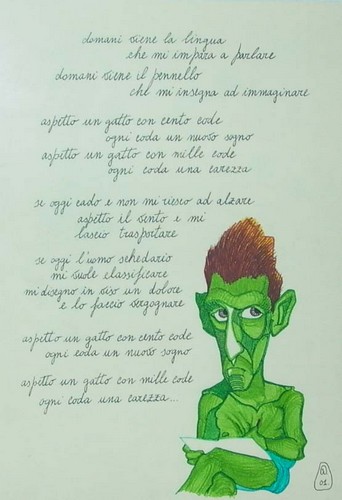 domani viene la lingua
che mi impara a parlare
domani viene il pennello
che mi insegna ad immaginare
aspetto un gatto con cento code
ogni coda un nuovo sogno
aspetto un gatto con mille code
ogni coda una carezza
se oggi cado e non mi riesco ad alzare
aspetto il vento e mi
lascio trasportare
se oggi l'uomo schedario
mi vuole classificare
mi disegno in viso un dolore
e lo faccio vergognare
aspetto un gatto con cento code
ogni coda un nuovo sogno
aspetto un gatto con mille code
ogni coda una carezza...
01